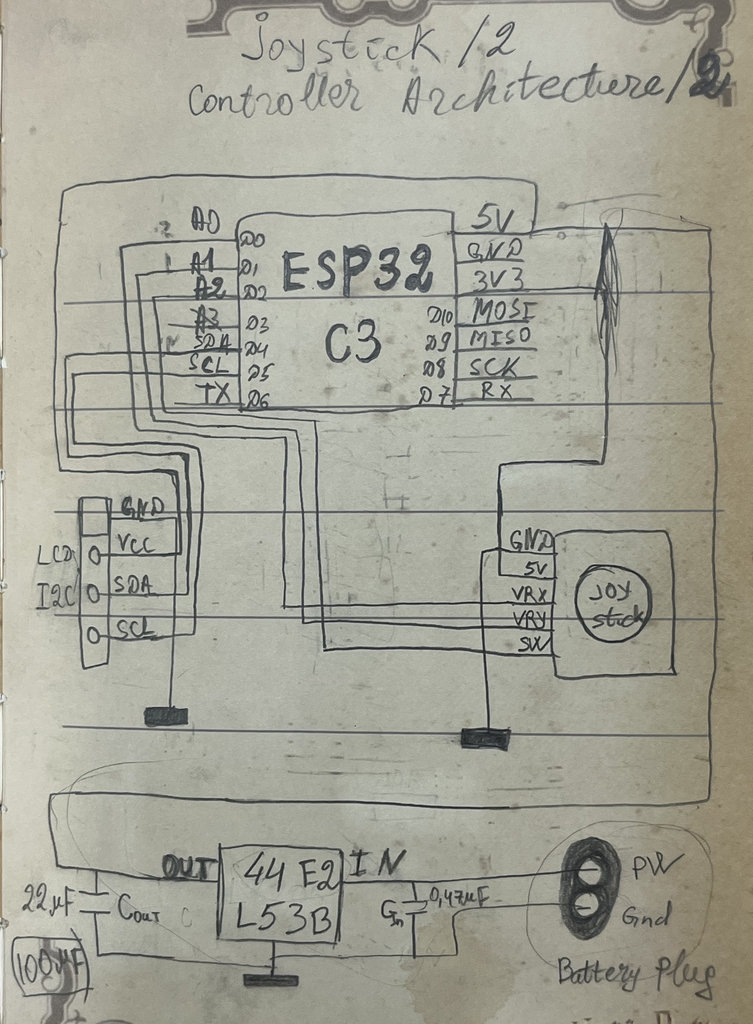 Joystick /2
Controller Architecture/2
A0
A1
A2
A3
SDA
SCL
TX
D0
D1
D2
D3
D4
D5
D6
ESP32
C3
D10
D9
D8
D7
5V
GND
3V3
MOSI
MISO
SCK
RX
LCD
I2C
GND
VCC
SDA
SCL
GND
5V
VRX
VRY
SW
JOY
stick
OUT
44 E2
L53B
IN
22µF
Cout
100µF
Cin
0,47µF
PW
Gnd
Battery Plug